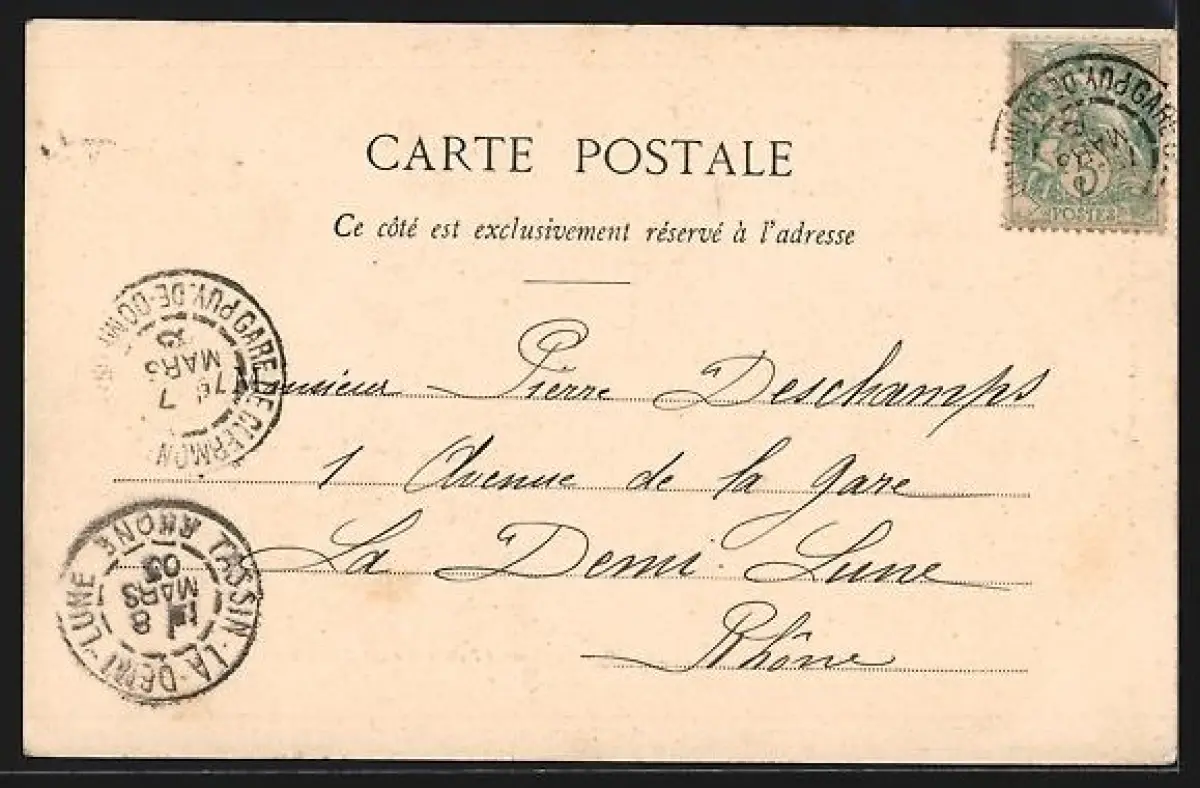 CARTE POSTALE
Ce côté est exclusivement réservé à l'adresse
POSTES
5
GARE DE CLERMON PUY-DE-DOM
16
7
MARS
Monsieur Pierre Deschamps
1 Avenue de la gare
La Demi-Lune
Rhône
TASSIN-LA-DEMI-LUNE
RHÔNE
8
MARS
03